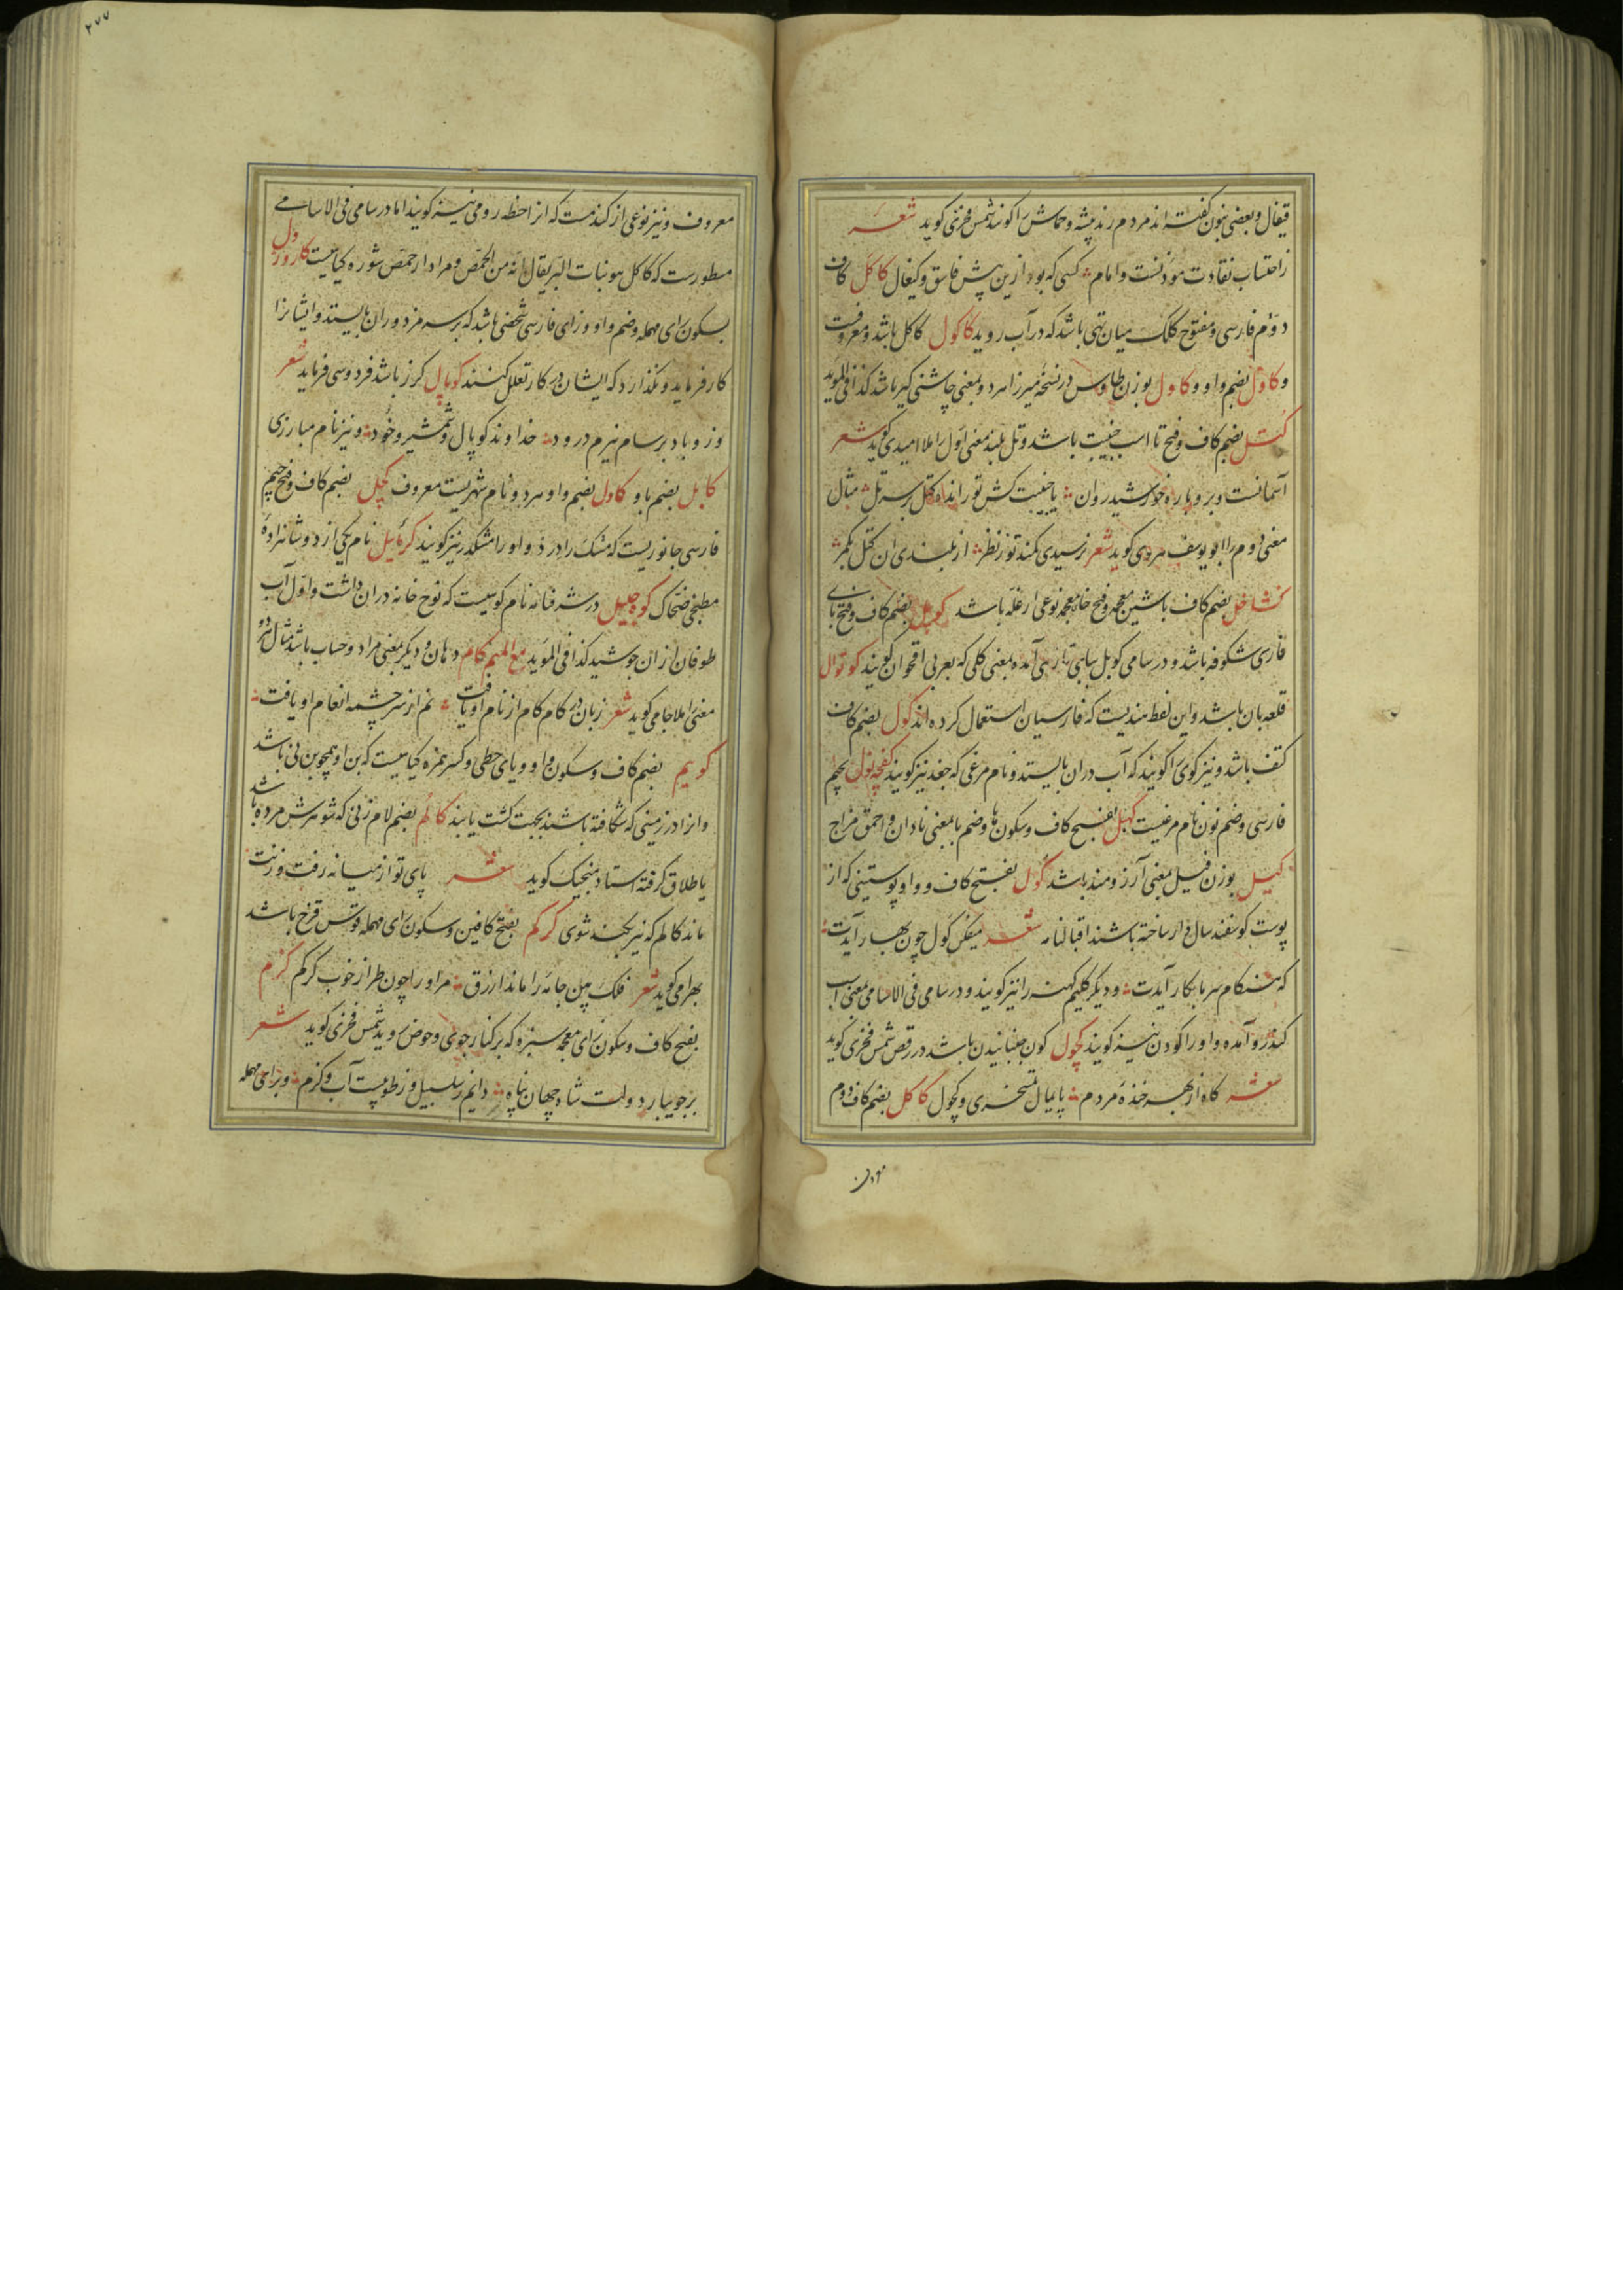 قیفال و بعضی بنون گفته اند مردم رند پیشه و حماش را گویند شمس فخری گوید شعر
ز احتساب نفاذت موذنست و امام کسی که بود ازین پیش فاسق و کیغال کاکل کاف
دوم فارسی و مفتوح کلک میان تهی باشد که در آب روید کاکول کاکل باشد و معروفست
و کاول بضم واو و کاول بوزن طاوس در نسخه میرزا مرد و بمعنی چاشنی گیر باشد کذا فی الموید
کتل بضم کاف و فتح تا اسب جنیبت باشد و تل بلند معنی اول را ملا امیدی گوید شعر
آسمانست و برو پاره خورشید روان یا جنیبت کش تو رانده کتل بر سر تل مثال
معنی دوم را ابو یوسف هروی گوید شعر نرسیدی کمند تو ز نظر از بلندی آن کتل بکمر
کشاخل بضم کاف باشین معجمه و فتح خاء معجمه نوعی از غله باشد کوپل بضم کاف و فتح بای
فارسی شکوفه باشد و در سامی کوبل ببای تازی آمده بمعنی گلی که بعربی اقحوان گویند کوتوال
قلعه بان باشد و این لفظ هندیست که فارسیان استعمال کرده اند کول بضم کاف
کتف باشد و نیز گوی را گویند که آب دران بایستد و نام مرغی که جغد نیز گویند کفچه نول بجیم
فارسی و ضم نون نام مرغیست کهبل بفتح کاف و سکون ها و ضم با بمعنی نادان و احمق مزاج
کییل بوزن فیل بمعنی آرزومند باشد کول بفتح کاف و واو پوستینی که از
پوست گوسفند سال دار ساخته باشند اقبالنامه شعر میفکن کول چون بهار آیدت
که هنگام سرما بکار آیدت و دیگر گلیم کهنه را نیز گویند و در سامی فی الاسامی بمعنی اسب
کندرو آمده و او را کودن نیز گویند کچول کون جنبانیدن باشد در رقص شمس فخری گوید
شعر گاه از بهر خنده مردم پایمال تسخری و کچول کاکل بضم کاف دوم
معروف و نیز نوعی از گندمست که انرا حنطه رومی نیز گویند اما در سامی فی الاسامی
مسطورست که کاکل هو نبات البر یقال انه من الحمض و مراد از حمض شوره گیاهیست کارورول
بسکون رای مهمله و ضم واو و زای فارسی شخصی باشد که بر سر مزدوران بایستد و ایشانرا
کار فرماید و نگذارد که ایشان در کار تعلل کنند کوپال گرز باشد فردوسی فرماید شعر
وزو باد بر سام نیرم درود خداوند کوپال و شمشیر و خود و نیز نام مبارزی
کابل بضم با و کاول بضم واو هر دو نام شهریست معروف کچل بضم کاف و فتح جیم
فارسی جانوریست که مشک را درد و او را مشکدر نیز گویند کرمائیل نام یکی از دو شاهزاده
مطبخی ضحاک کوه جلیل در شرفنامه نام کوهیست که نوح خانه دران داشت و اول آب
طوفان ازان جوشید کذا فی الموید مع المیم کام دهان و دیگر بمعنی مراد و حساب باشد مثال هر دو
معنی را ملا جامی گوید شعر زبان در کام کام از نام او یافت نم از سرچشمه انعام او یافت
کویم بضم کاف و سکون واو و یای حطی و کسر همزه گیاهیست که بن او همچو بن نی باشد
و انرا در زمینی که شکافته باشند بجهت کشت یابند کالم بضم لام زنی که شوهرش مرده باشد
یا طلاق گرفته استاد منجیک گوید شعر پای تو از میانه رفت و زنت
ماند کالم که نیز نکند شوی کرکم بفتح کافین و سکون رای مهمله قوس قزح باشد
بهرامی گوید شعر فلک بین جامه را ماند ازرق مر او را چون طراز خوب کرکم کزم
بفتح کاف و سکون زای معجمه سبزه که بر کنار جوی و حوض روید شمس فخری گوید شعر
بر جویبار دولت شاه جهان پناه دایم ز سلسبیل و ز طوبیست آب و کزم و برای مهمله
معروف
۲۷۷